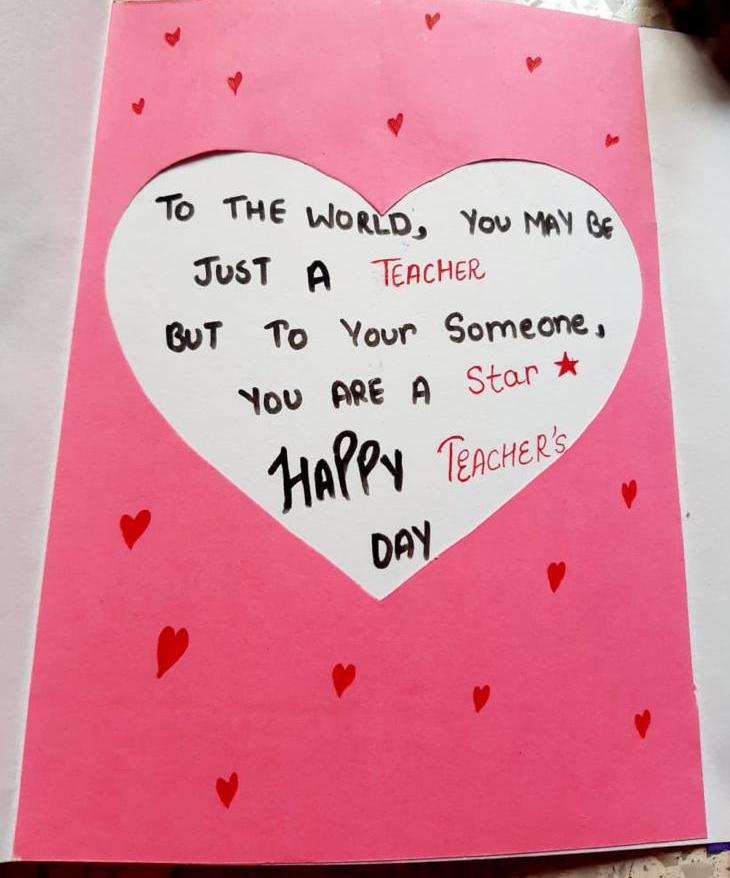 TO THE WORLD, YOU MAY BE
JUST A TEACHER
BUT TO Your Someone,
YOU ARE A Star ★
HAPPY TEACHER'S
DAY